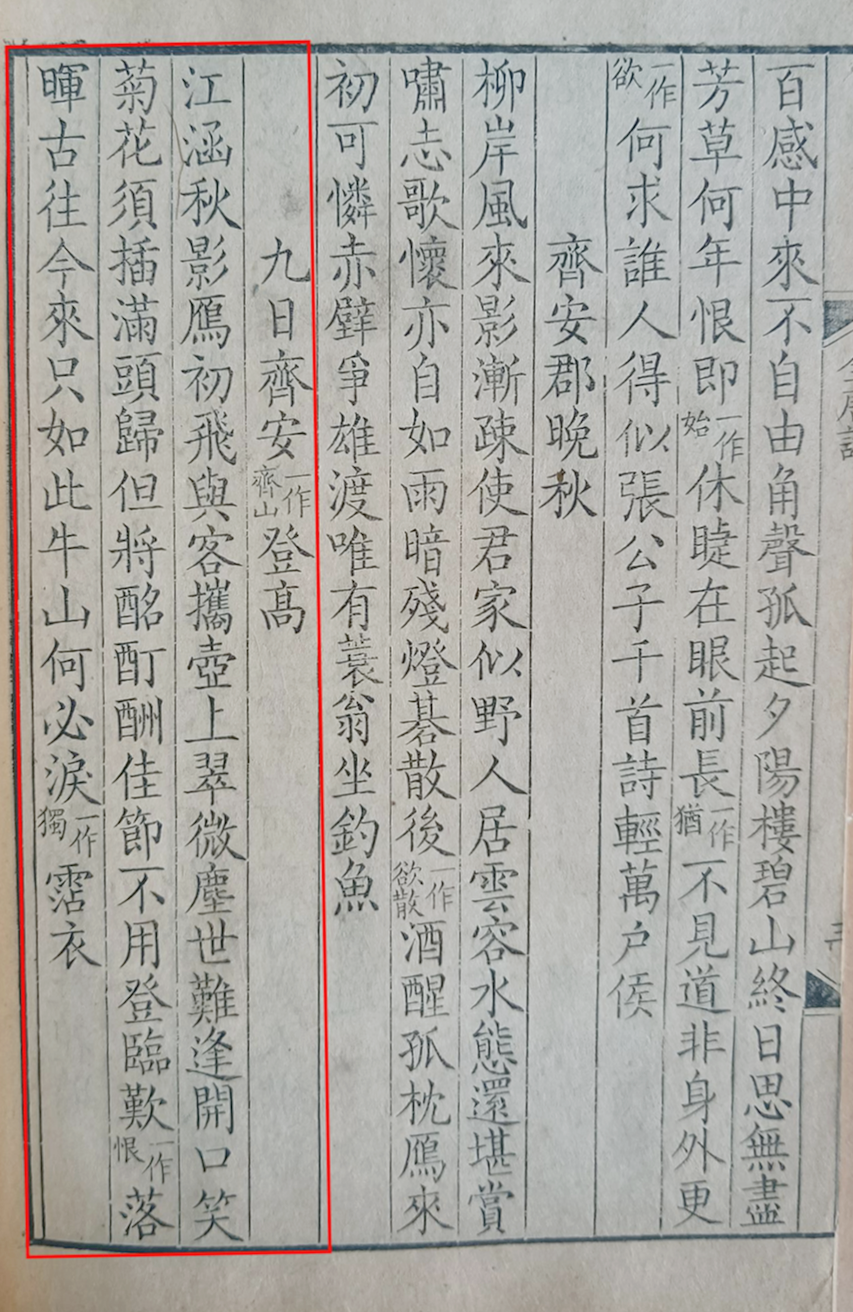 百感中來不自由角聲孤起夕陽樓碧山終日思無盡
芳草何年恨即一作始休睫在眼前長一作猶不見道非身外更
一作欲何求誰人得似張公子千首詩輕萬戶侯
齊安郡晚秋
柳岸風來影漸疎使君家似野人居雲容水態還堪賞
嘯志歌懷亦自如雨暗殘燈棊散後一作欲散酒醒孤枕鴈來
初可憐赤壁爭雄渡唯有蓑翁坐釣魚
九日齊安一作齊山登高
江涵秋影鴈初飛與客攜壺上翠微塵世難逢開口笑
菊花須插滿頭歸但將酩酊酬佳節不用登臨歎一作恨落
暉古往今來只如此牛山何必淚一作獨霑衣